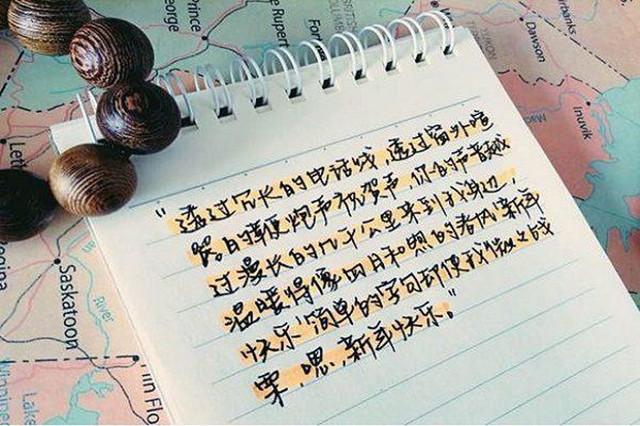 Prince
George
Prince
Rupert
Dawson
Inuvik
"透过冗长的电话线,透过窗外喧
嚣的鞭炮声祝贺声,你的声音越
过漫长的几千公里来到我身边,
温暖得像四月和煦的春风,新年
快乐"简单的字句却使我微微战
栗,嗯,新年快乐。"
Saskatoon
River
Lake